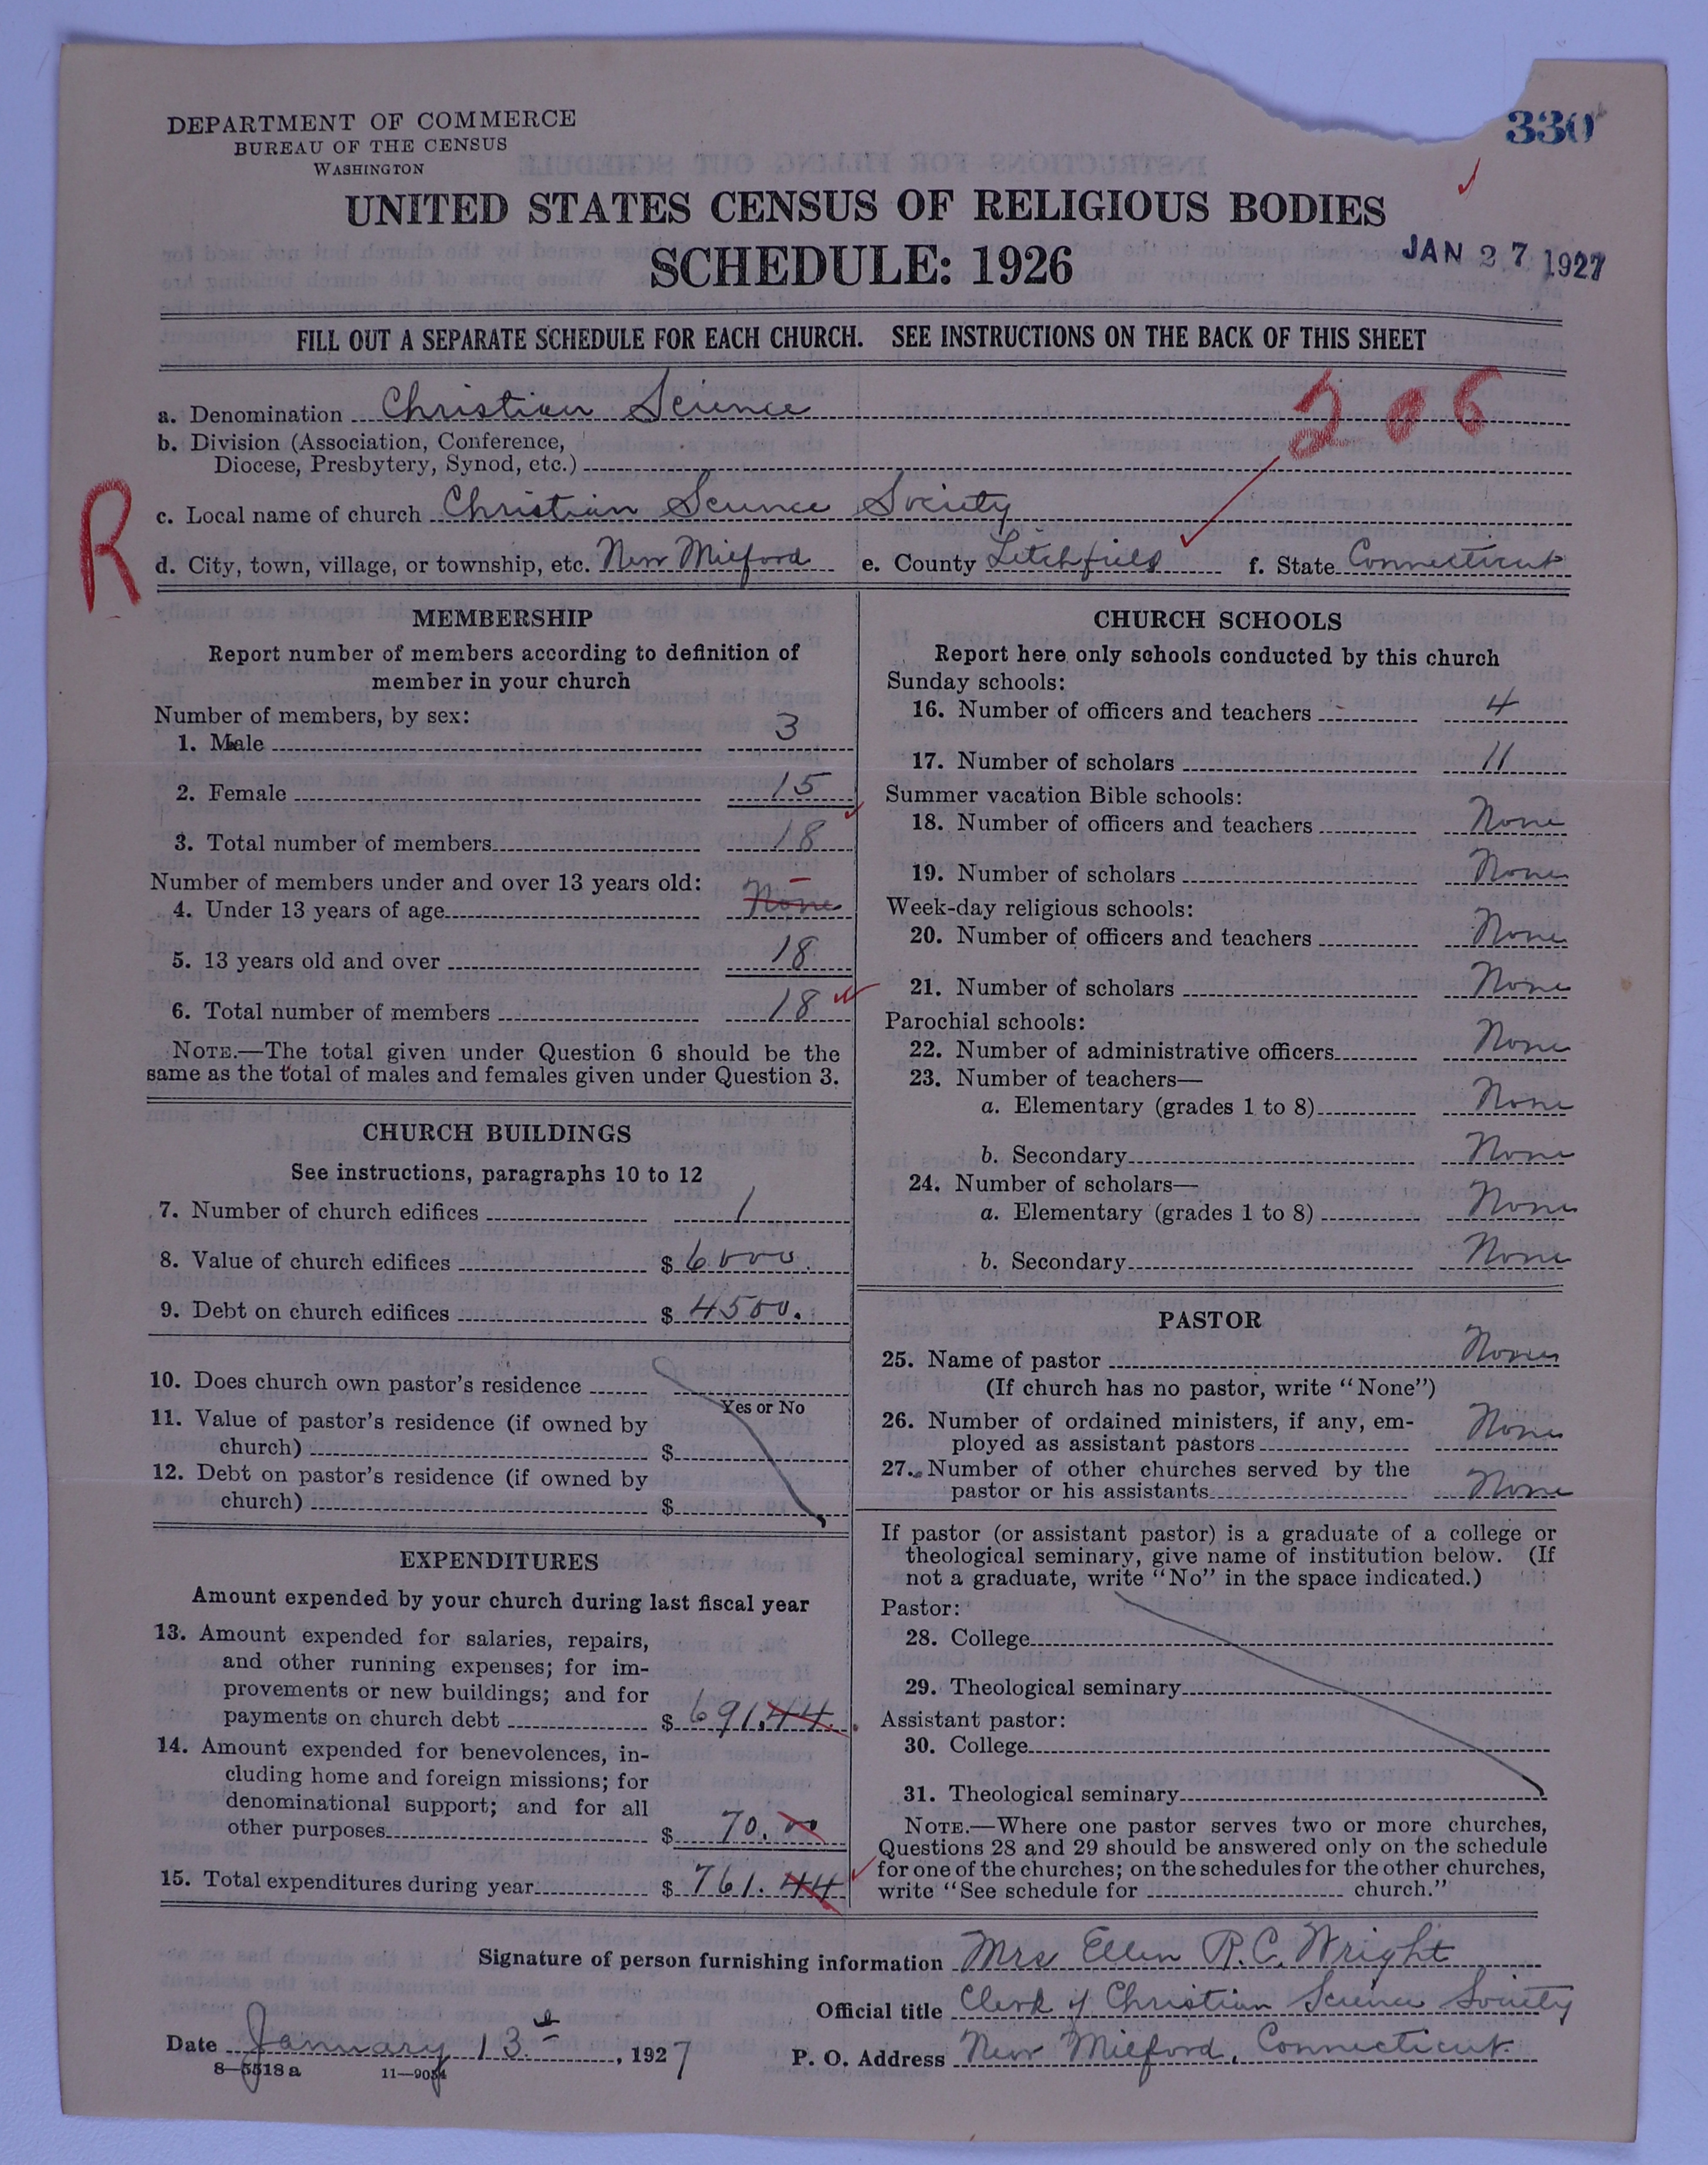 DEPARTMENT OF COMMERCE
BUREAU OF THE CENSUS
WASHINGTON
330
UNITED STATES CENSUS OF RELIGIOUS BODIES
SCHEDULE: 1926
JAN 27 1927
FILL OUT A SEPARATE SCHEDULE FOR EACH CHURCH. SEE INSTRUCTIONS ON THE BACK OF THIS SHEET
206
a. Denomination Christian Science
b. Division (Association, Conference,
Diocese, Presbytery, Synod, etc.)
R
c. Local name of church Christian Science Society
d. City, town, village, or township, etc. New Milford e. County Litchfield f. State Connecticut
MEMBERSHIP
Report number of members according to definition of
member in your church
Number of members, by sex:
1. Male 3
2. Female 15
3. Total number of members 18
Number of members under and over 13 years old:
4. Under 13 years of age None
5. 13 years old and over 18
6. Total number of members 18
NOTE.—The total given under Question 6 should be the
same as the total of males and females given under Question 3.
CHURCH BUILDINGS
See instructions, paragraphs 10 to 12
7. Number of church edifices 1
8. Value of church edifices $ 6000.
9. Debt on church edifices $ 4500.
10. Does church own pastor's residence
Yes or No
11. Value of pastor's residence (if owned by
church) $
12. Debt on pastor's residence (if owned by
church) $
EXPENDITURES
Amount expended by your church during last fiscal year
13. Amount expended for salaries, repairs,
and other running expenses; for im-
provements or new buildings; and for
payments on church debt $ 691.44
14. Amount expended for benevolences, in-
cluding home and foreign missions; for
denominational support; and for all
other purposes $ 70.00
15. Total expenditures during year $ 761.44
CHURCH SCHOOLS
Report here only schools conducted by this church
Sunday schools:
16. Number of officers and teachers 4
17. Number of scholars 11
Summer vacation Bible schools:
18. Number of officers and teachers None
19. Number of scholars None
Week-day religious schools:
20. Number of officers and teachers None
21. Number of scholars None
Parochial schools:
22. Number of administrative officers None
23. Number of teachers—
a. Elementary (grades 1 to 8) None
b. Secondary None
24. Number of scholars—
a. Elementary (grades 1 to 8) None
b. Secondary None
PASTOR
25. Name of pastor None
(If church has no pastor, write "None")
26. Number of ordained ministers, if any, em-
ployed as assistant pastors None
27. Number of other churches served by the
pastor or his assistants None
If pastor (or assistant pastor) is a graduate of a college or
theological seminary, give name of institution below. (If
not a graduate, write "No" in the space indicated.)
Pastor:
28. College
29. Theological seminary
Assistant pastor:
30. College
31. Theological seminary
NOTE.—Where one pastor serves two or more churches,
Questions 28 and 29 should be answered only on the schedule
for one of the churches; on the schedules for the other churches,
write "See schedule for church."
Signature of person furnishing information Mrs Ellen R.C. Wright
Official title Clerk of Christian Science Society
Date January 13th, 1927 P. O. Address New Milford, Connecticut
8—5518 a 11—9034